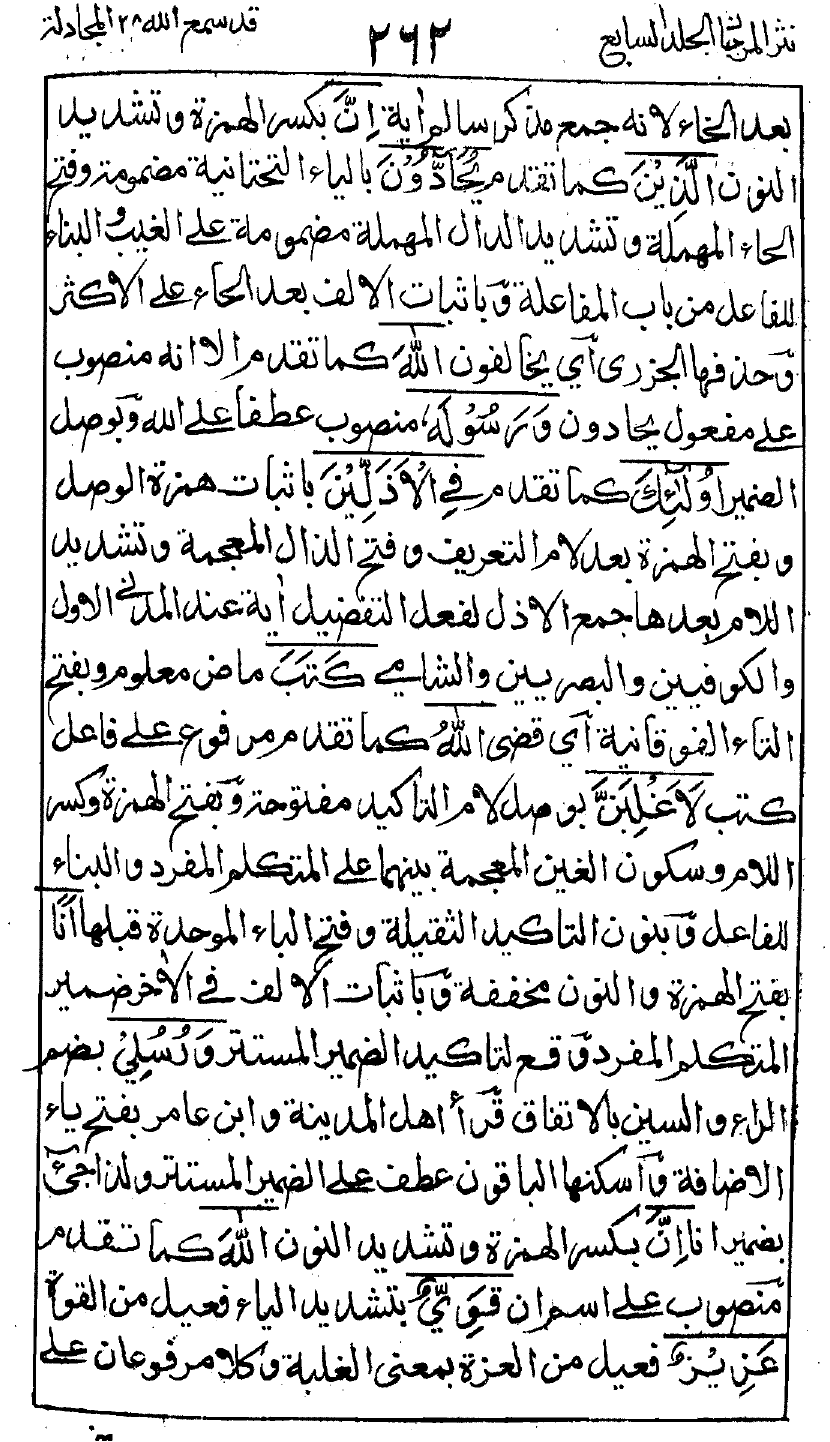 نثر المرجان الجلد السابع ٢٦٢ قد سمع الله ٢٨ المجادلة
بعد الخاء لانه جمع مذكر سالم اية إِنَّ بكسر الهمزة وتشديد
النون الَّذِيْنَ كما تقدم يُحَادُّوْنَ بالياء التحتانية مضمومة وفتح
الحاء المهملة وتشديد الدال المهملة مضمومة على الغيب والبناء
للفاعل من باب المفاعلة وباثبات الالف بعد الحاء على الاكثر
وحذفها الجزرى أي يخالفون اللهَ كما تقدم الا انه منصوب
على مفعول يحادون وَرَسُوْلَهٗ منصوب عطفا على الله وبوصل
الضمير اُولٰٓئِكَ كما تقدم فِي الْاَذَلِّيْنَ باثبات همزة الوصل
وبفتح الهمزة بعد لام التعريف وفتح الذال المعجمة وتشديد
اللام بعدها جمع الاذل لفعل التفضيل أية عند المدنى الاول
والكوفيين والبصريين والشامي كَتَبَ ماض معلوم وبفتح
التاء الفوقانية أي قضى اللهُ كما تقدم مرفوع على فاعل
كتب لَاَغْلِبَنَّ بوصل لام التاكيد مفتوحة وبفتح الهمزة وكسر
اللام وسكون الغين المعجمة بينهما على المتكلم المفرد والبناء
للفاعل وبنون التاكيد الثقيلة وفتح الباء الموحدة قبلها أَنَا
بفتح الهمزة والنون مخففة وباثبات الالف في الأخر ضمير
المتكلم المفرد وقع لتاكيد الضمير المستتر وَرُسُلِيْ بضم
الراء والسين بالاتفاق قرأ اهل المدينة وابن عامر بفتح ياء
الاضافة وأسكنها الباقون عطف على الضمير المستتر ولذا جيٓء
بضمير انا إِنَّ بكسر الهمزة وتشديد النون اللهَ كما تقدم
منصوب على اسم ان قَوِيٌّ بتشديد الياء فعيل من القوة
عَزِيْزٌ فعيل من العزة بمعنى الغلبة وكلا مرفوعان على